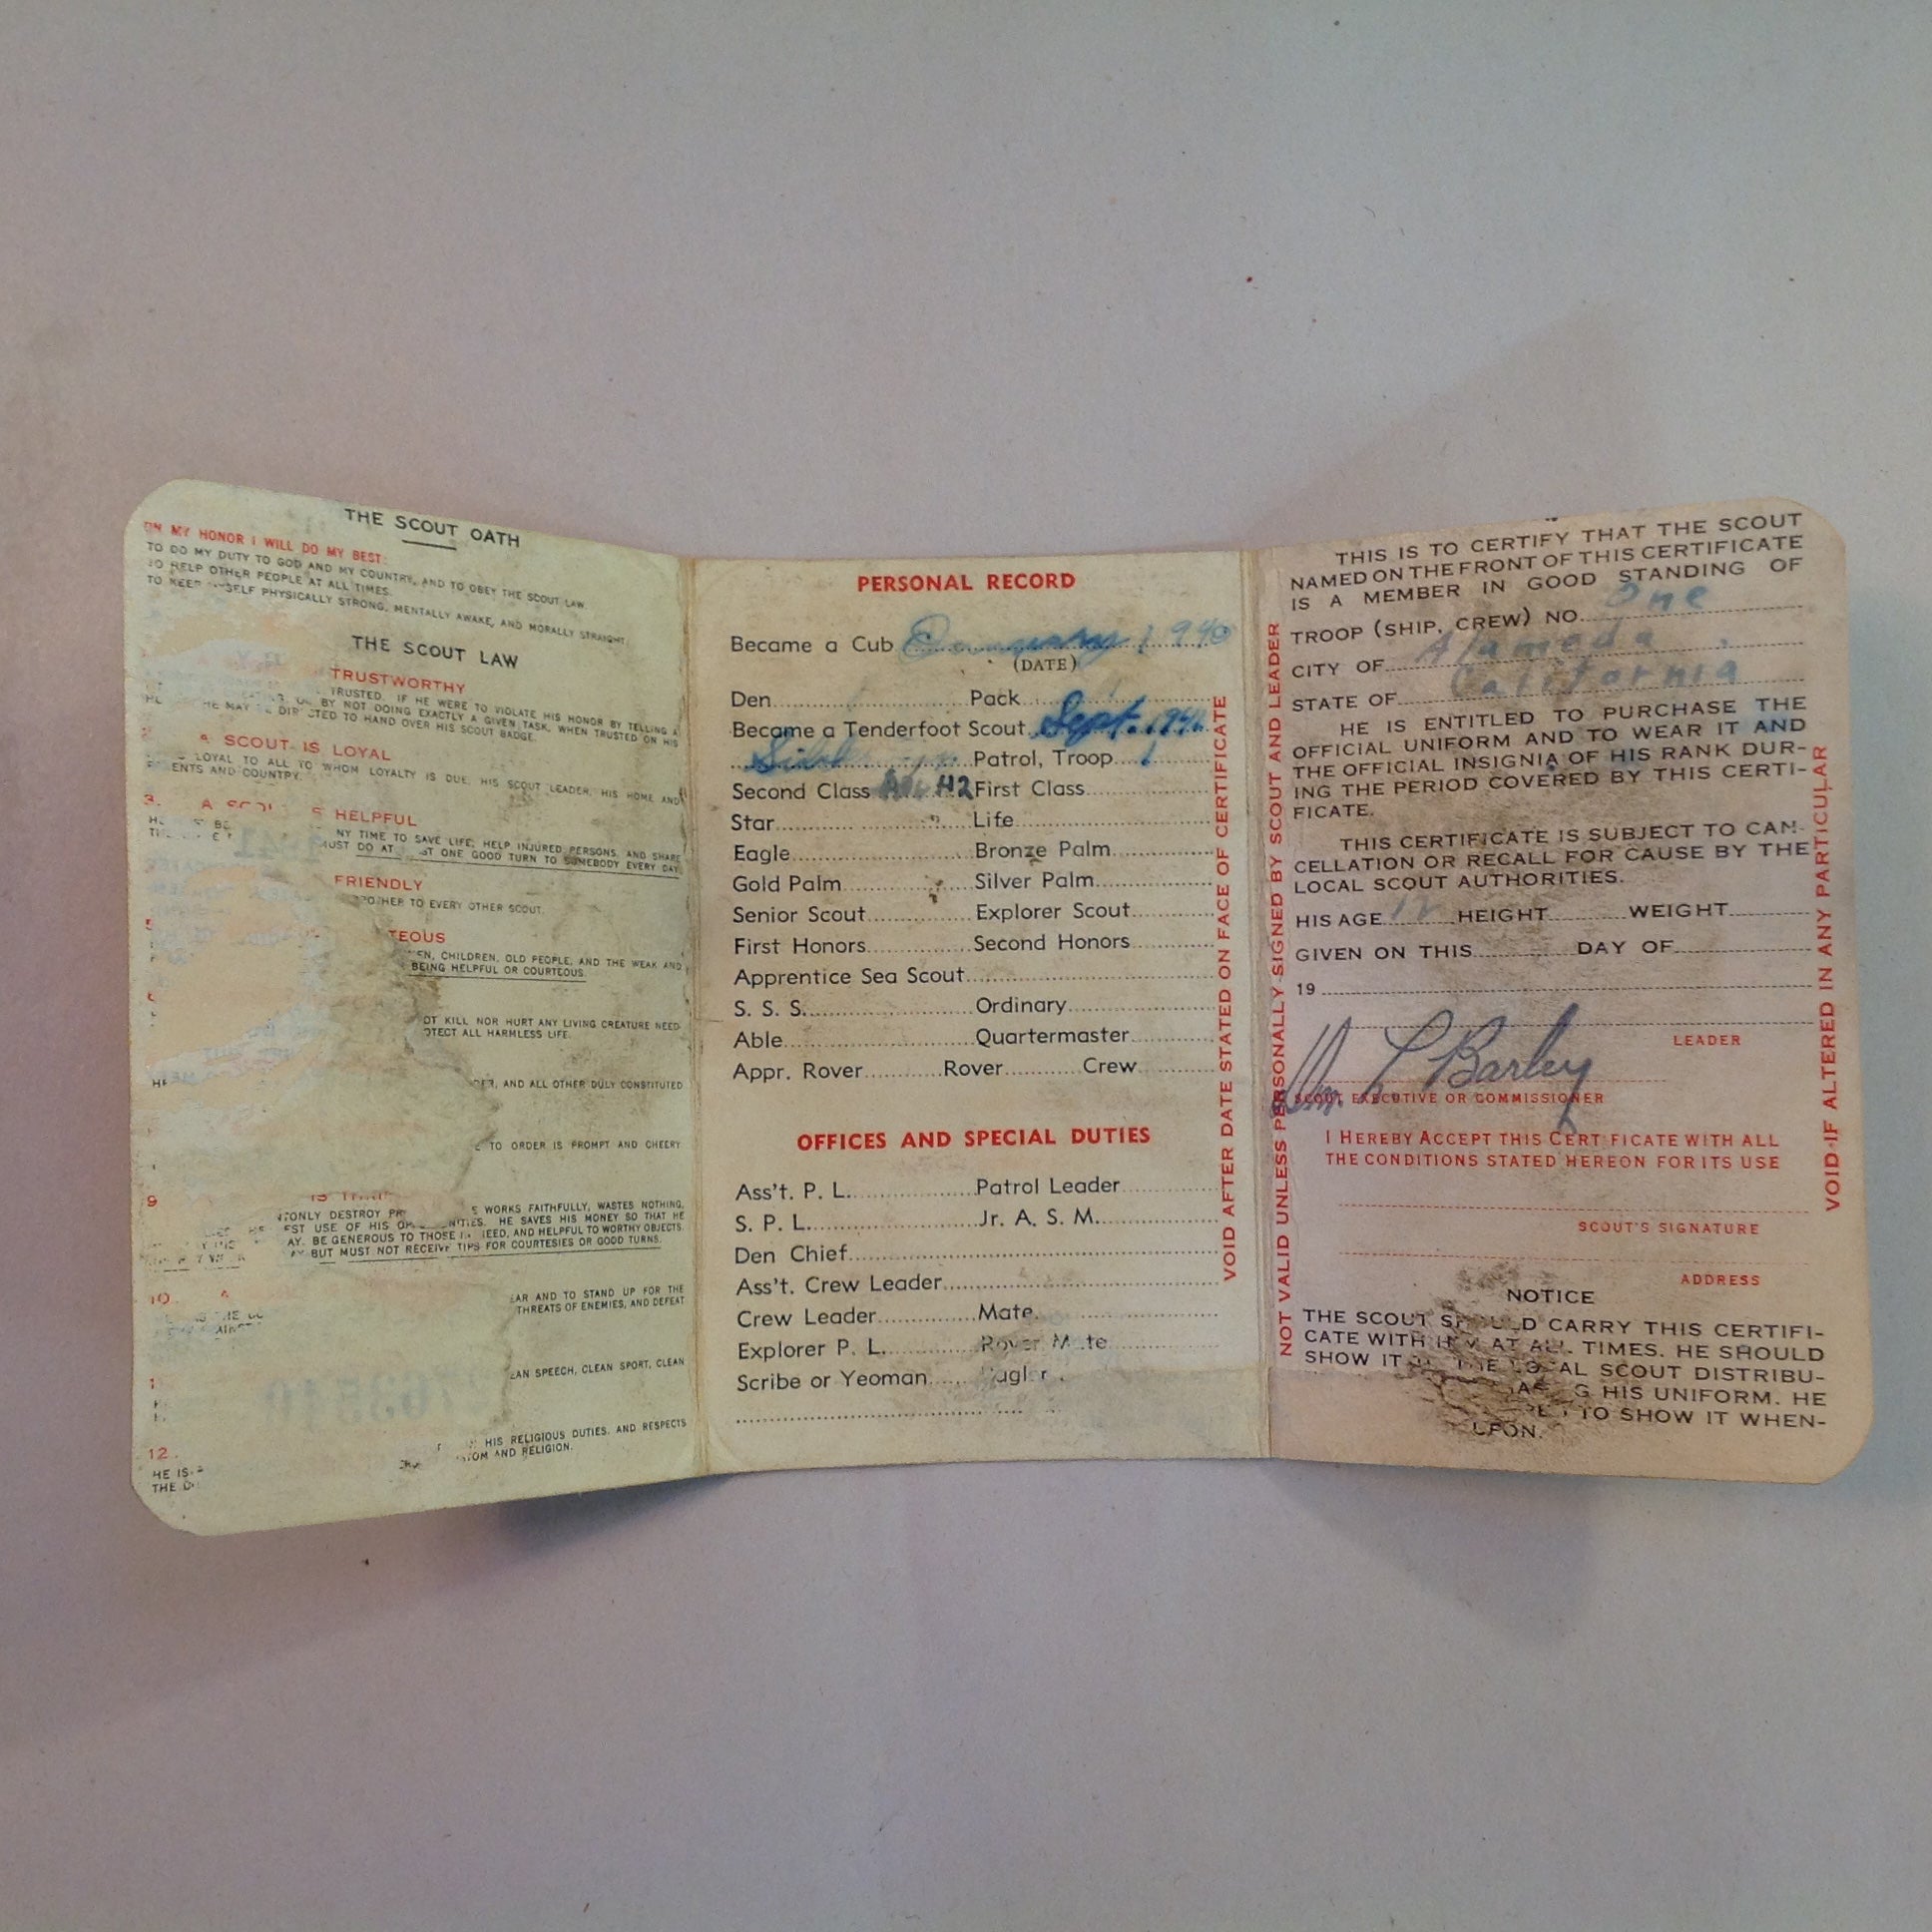 THE SCOUT OATH
ON MY HONOR I WILL DO MY BEST:
TO DO MY DUTY TO GOD AND MY COUNTRY, AND TO OBEY THE SCOUT LAW.
TO HELP OTHER PEOPLE AT ALL TIMES.
TO KEEP MYSELF PHYSICALLY STRONG, MENTALLY AWAKE, AND MORALLY STRAIGHT.
THE SCOUT LAW
TRUSTWORTHY
TRUSTED. IF HE WERE TO VIOLATE HIS HONOR BY TELLING A
BY NOT DOING EXACTLY A GIVEN TASK, WHEN TRUSTED ON HIS
HE MAY BE DIRECTED TO HAND OVER HIS SCOUT BADGE.
A SCOUT IS LOYAL
LOYAL TO ALL TO WHOM LOYALTY IS DUE, HIS SCOUT LEADER, HIS HOME AND
PARENTS AND COUNTRY.
3. A SCOUT IS HELPFUL
ANY TIME TO SAVE LIFE, HELP INJURED PERSONS, AND SHARE
MUST DO AT LEAST ONE GOOD TURN TO SOMEBODY EVERY DAY.
FRIENDLY
BROTHER TO EVERY OTHER SCOUT.
TEOUS
CHILDREN, OLD PEOPLE, AND THE WEAK AND
BEING HELPFUL OR COURTEOUS.
NOT KILL NOR HURT ANY LIVING CREATURE NEED-
PROTECT ALL HARMLESS LIFE.
AND ALL OTHER DULY CONSTITUTED
TO ORDER IS PROMPT AND CHEERY
9
WORKS FAITHFULLY, WASTES NOTHING,
BEST USE OF HIS OPPORTUNITIES. HE SAVES HIS MONEY SO THAT HE
BE GENEROUS TO THOSE IN NEED, AND HELPFUL TO WORTHY OBJECTS.
BUT MUST NOT RECEIVE TIPS FOR COURTESIES OR GOOD TURNS.
10. A
AND TO STAND UP FOR THE
THREATS OF ENEMIES, AND DEFEAT
CLEAN SPEECH, CLEAN SPORT, CLEAN
12.
HE IS HIS RELIGIOUS DUTIES, AND RESPECTS
THE AND RELIGION.
PERSONAL RECORD
Became a Cub 1940
(DATE)
Den Pack
Became a Tenderfoot Scout Sept.
Patrol, Troop 1
Second Class 42 First Class
Star Life
Eagle Bronze Palm
Gold Palm Silver Palm
Senior Scout Explorer Scout
First Honors Second Honors
Apprentice Sea Scout
S. S. S. Ordinary
Able Quartermaster
Appr. Rover Rover Crew
OFFICES AND SPECIAL DUTIES
Ass't. P. L. Patrol Leader
S. P. L. Jr. A. S. M.
Den Chief
Ass't. Crew Leader
Crew Leader Mate
Explorer P. L. Rover Mate
Scribe or Yeoman Bugler
VOID AFTER DATE STATED ON FACE OF CERTIFICATE
NOT VALID UNLESS PERSONALLY SIGNED BY SCOUT AND LEADER
THIS IS TO CERTIFY THAT THE SCOUT
NAMED ON THE FRONT OF THIS CERTIFICATE
IS A MEMBER IN GOOD STANDING OF
TROOP (SHIP, CREW) NO. One
CITY OF Alameda
STATE OF California
HE IS ENTITLED TO PURCHASE THE
OFFICIAL UNIFORM AND TO WEAR IT AND
THE OFFICIAL INSIGNIA OF HIS RANK DUR-
ING THE PERIOD COVERED BY THIS CERTI-
FICATE.
THIS CERTIFICATE IS SUBJECT TO CAN-
CELLATION OR RECALL FOR CAUSE BY THE
LOCAL SCOUT AUTHORITIES.
HIS AGE 12 HEIGHT WEIGHT
GIVEN ON THIS DAY OF
19
LEADER
Wm. L Barley
SCOUT EXECUTIVE OR COMMISSIONER
I HEREBY ACCEPT THIS CERTIFICATE WITH ALL
THE CONDITIONS STATED HEREON FOR ITS USE
SCOUT'S SIGNATURE
ADDRESS
NOTICE
THE SCOUT SHOULD CARRY THIS CERTIFI-
CATE WITH HIM AT ALL TIMES. HE SHOULD
SHOW IT THE LOCAL SCOUT DISTRIBU-
HIS UNIFORM. HE
TO SHOW IT WHEN-
UPON.
VOID IF ALTERED IN ANY PARTICULAR